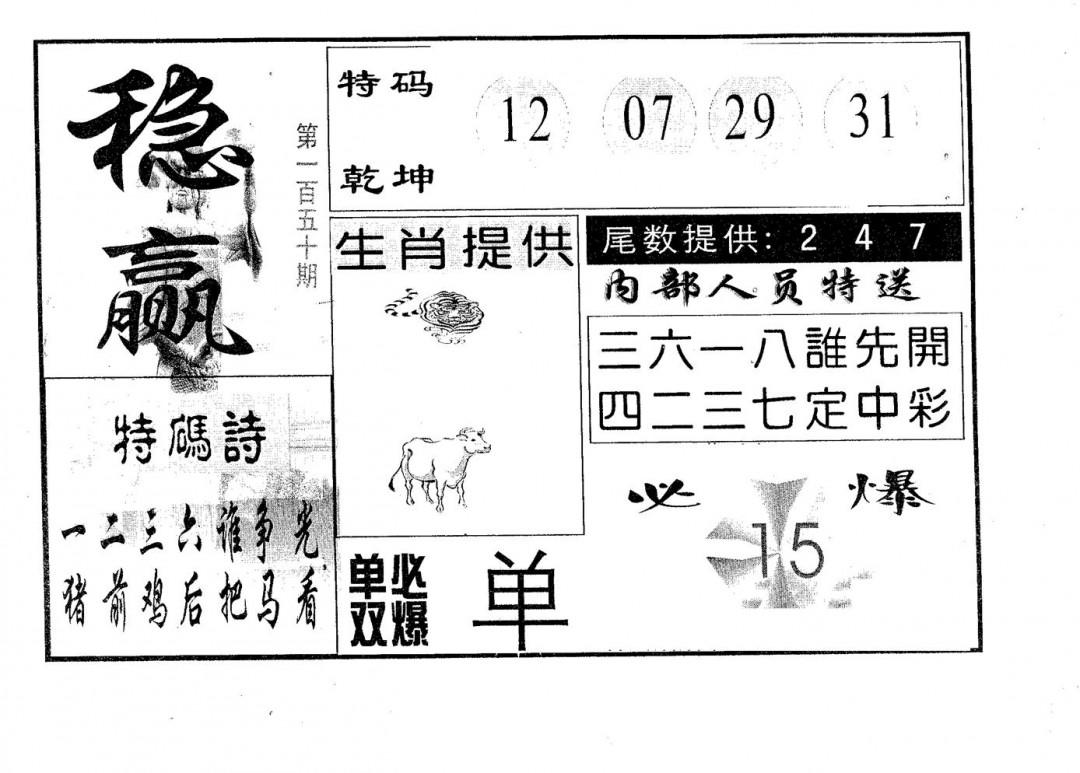 稳赢
第一百五十期
特码
乾坤
12 07 29 31
生肖提供
尾数提供: 2 4 7
内部人员特送
三六一八誰先開
四二三七定中彩
特碼詩
一二三六谁争光
猪前鸡后把马看
必爆
15
单双
必爆
单